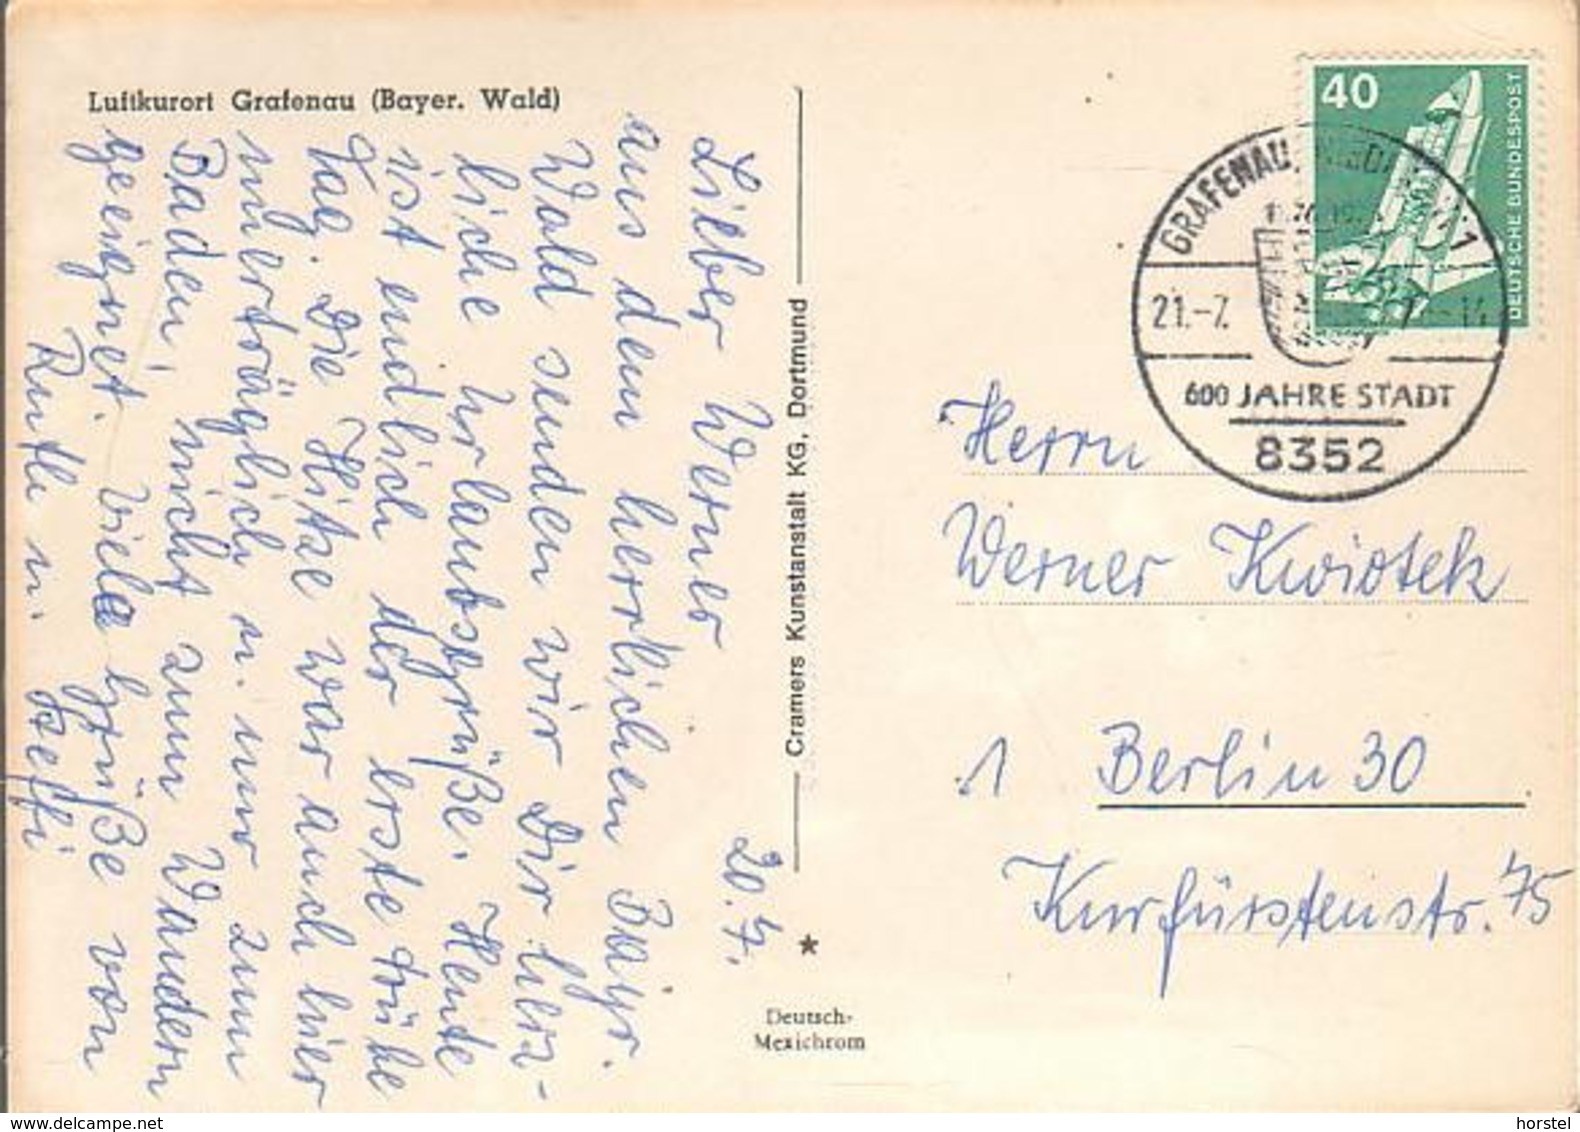 Luftkurort Grafenau (Bayer. Wald)
20.7.
Lieber Werner
aus dem herrlichen Bayr.
Wald senden wir Dir herz-
liche Urlaubsgrüße. Heute
ist endlich der erste trübe
Tag. Die Hitze war auch hier
unerträglich u. nur zum
Baden, nicht zum Wandern
geeignet. Viele Grüße von
Ruth u. Steffi
Cramers Kunstanstalt KG, Dortmund
Deutsch-
Mexichrom
40
DEUTSCHE BUNDESPOST
GRAFENAU,
1
21.-7.
600 JAHRE STADT
8352
Herrn
Werner Kwiotek
1 Berlin 30
Kurfürstenstr. 75
www.delcampe.net
horstel